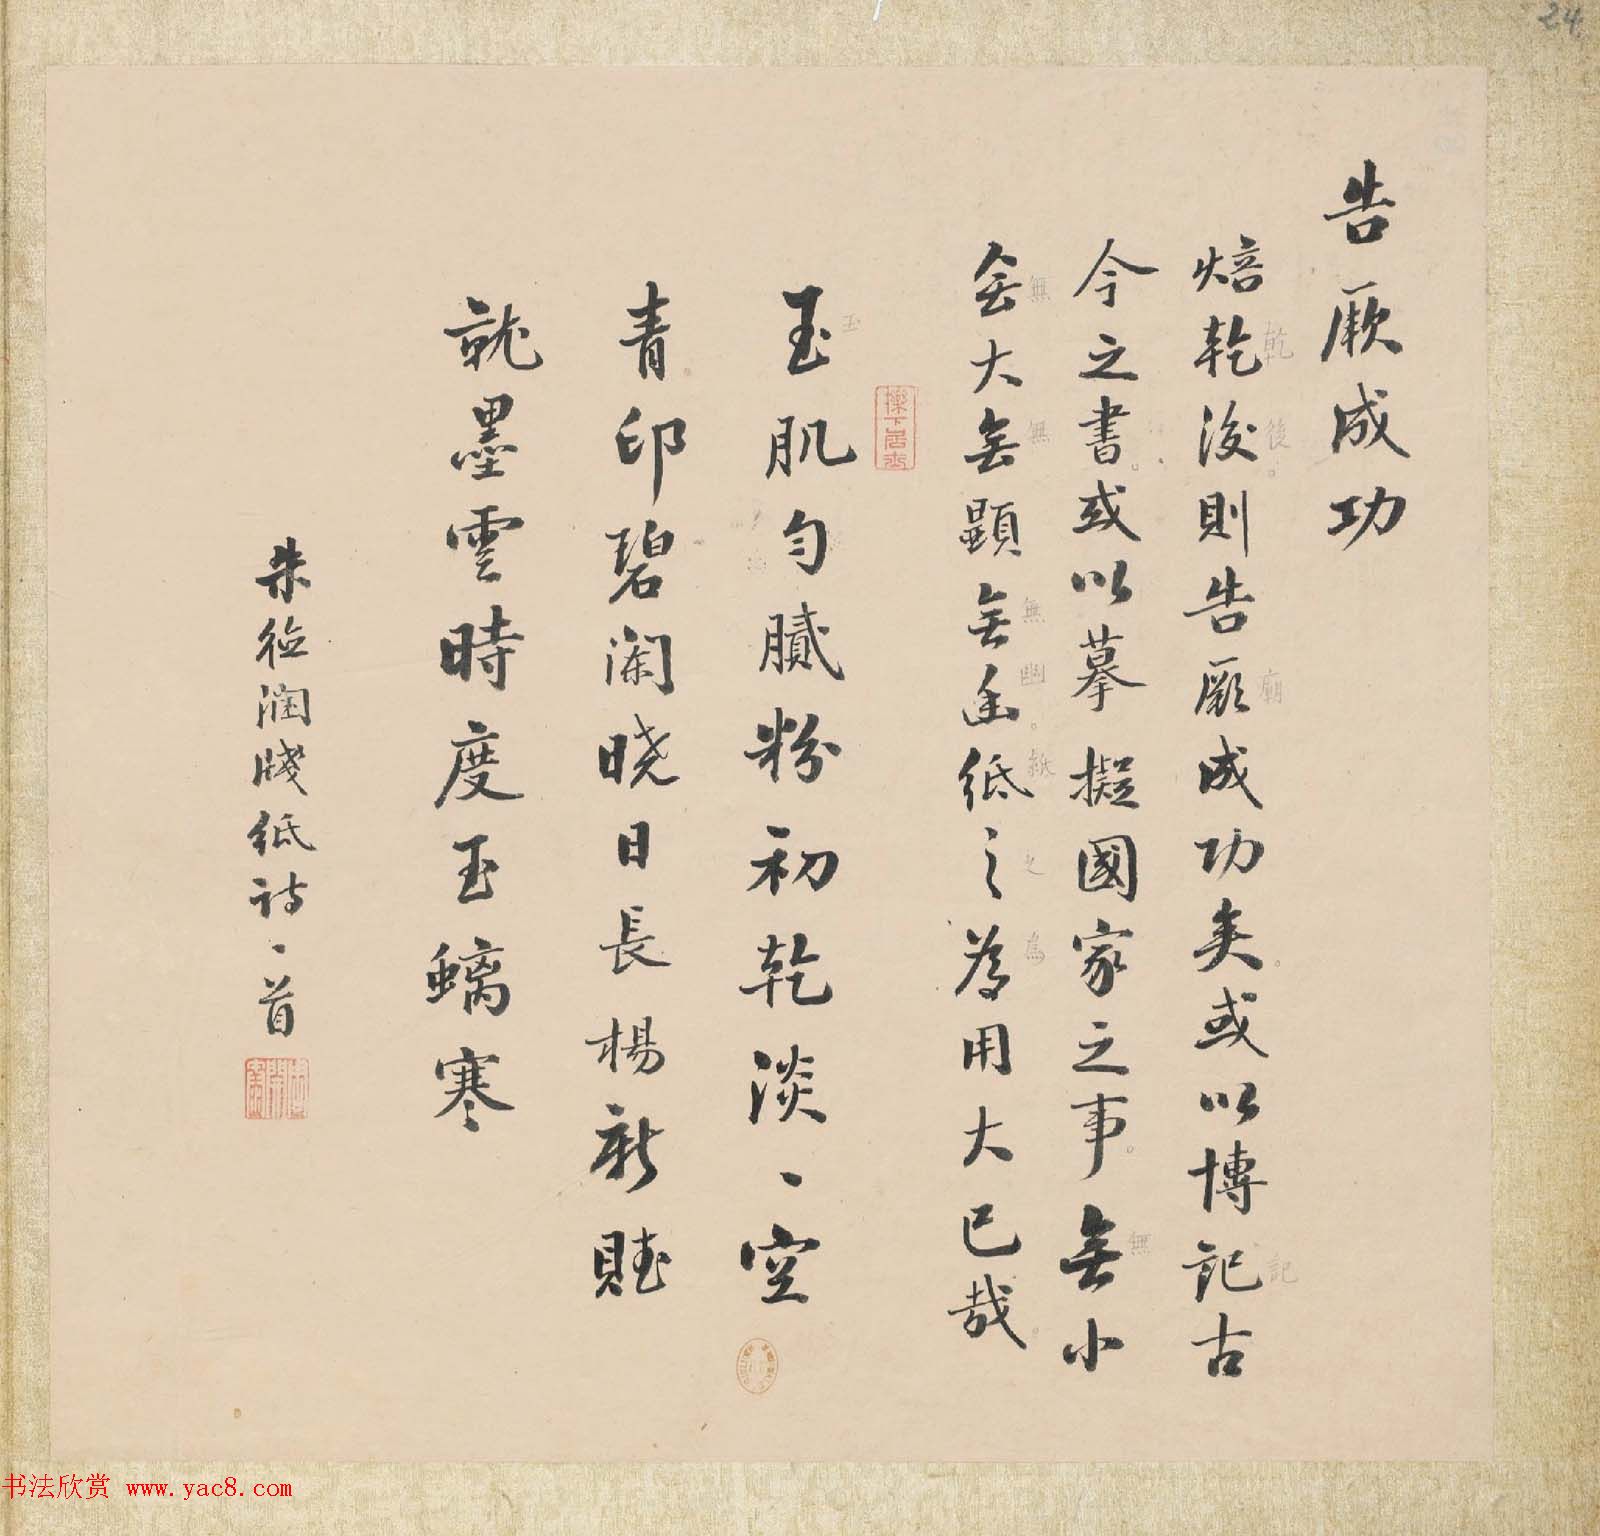 告厥成功
焙乾後則告厥成功矣或以博記古
今之書或以摹擬國家之事無小
無大無顯無幽紙之為用大已哉
玉肌勻膩粉初乾淡、空
青印碧闌曉日長楊新賦
就墨雲時度玉螭寒
朱德潤牋紙詩、首
24
乾
後
廟
記
無
無
無
無
幽
紙
之
為
玉
书法欣赏 www.yac8.com